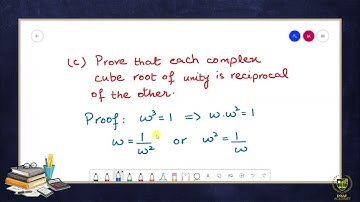 (c) Prove that each complex
cube root of unity is reciprocal
of the other.
Proof: ω³=1 => ω.ω²=1
ω = 1/ω² or ω² = 1/ω